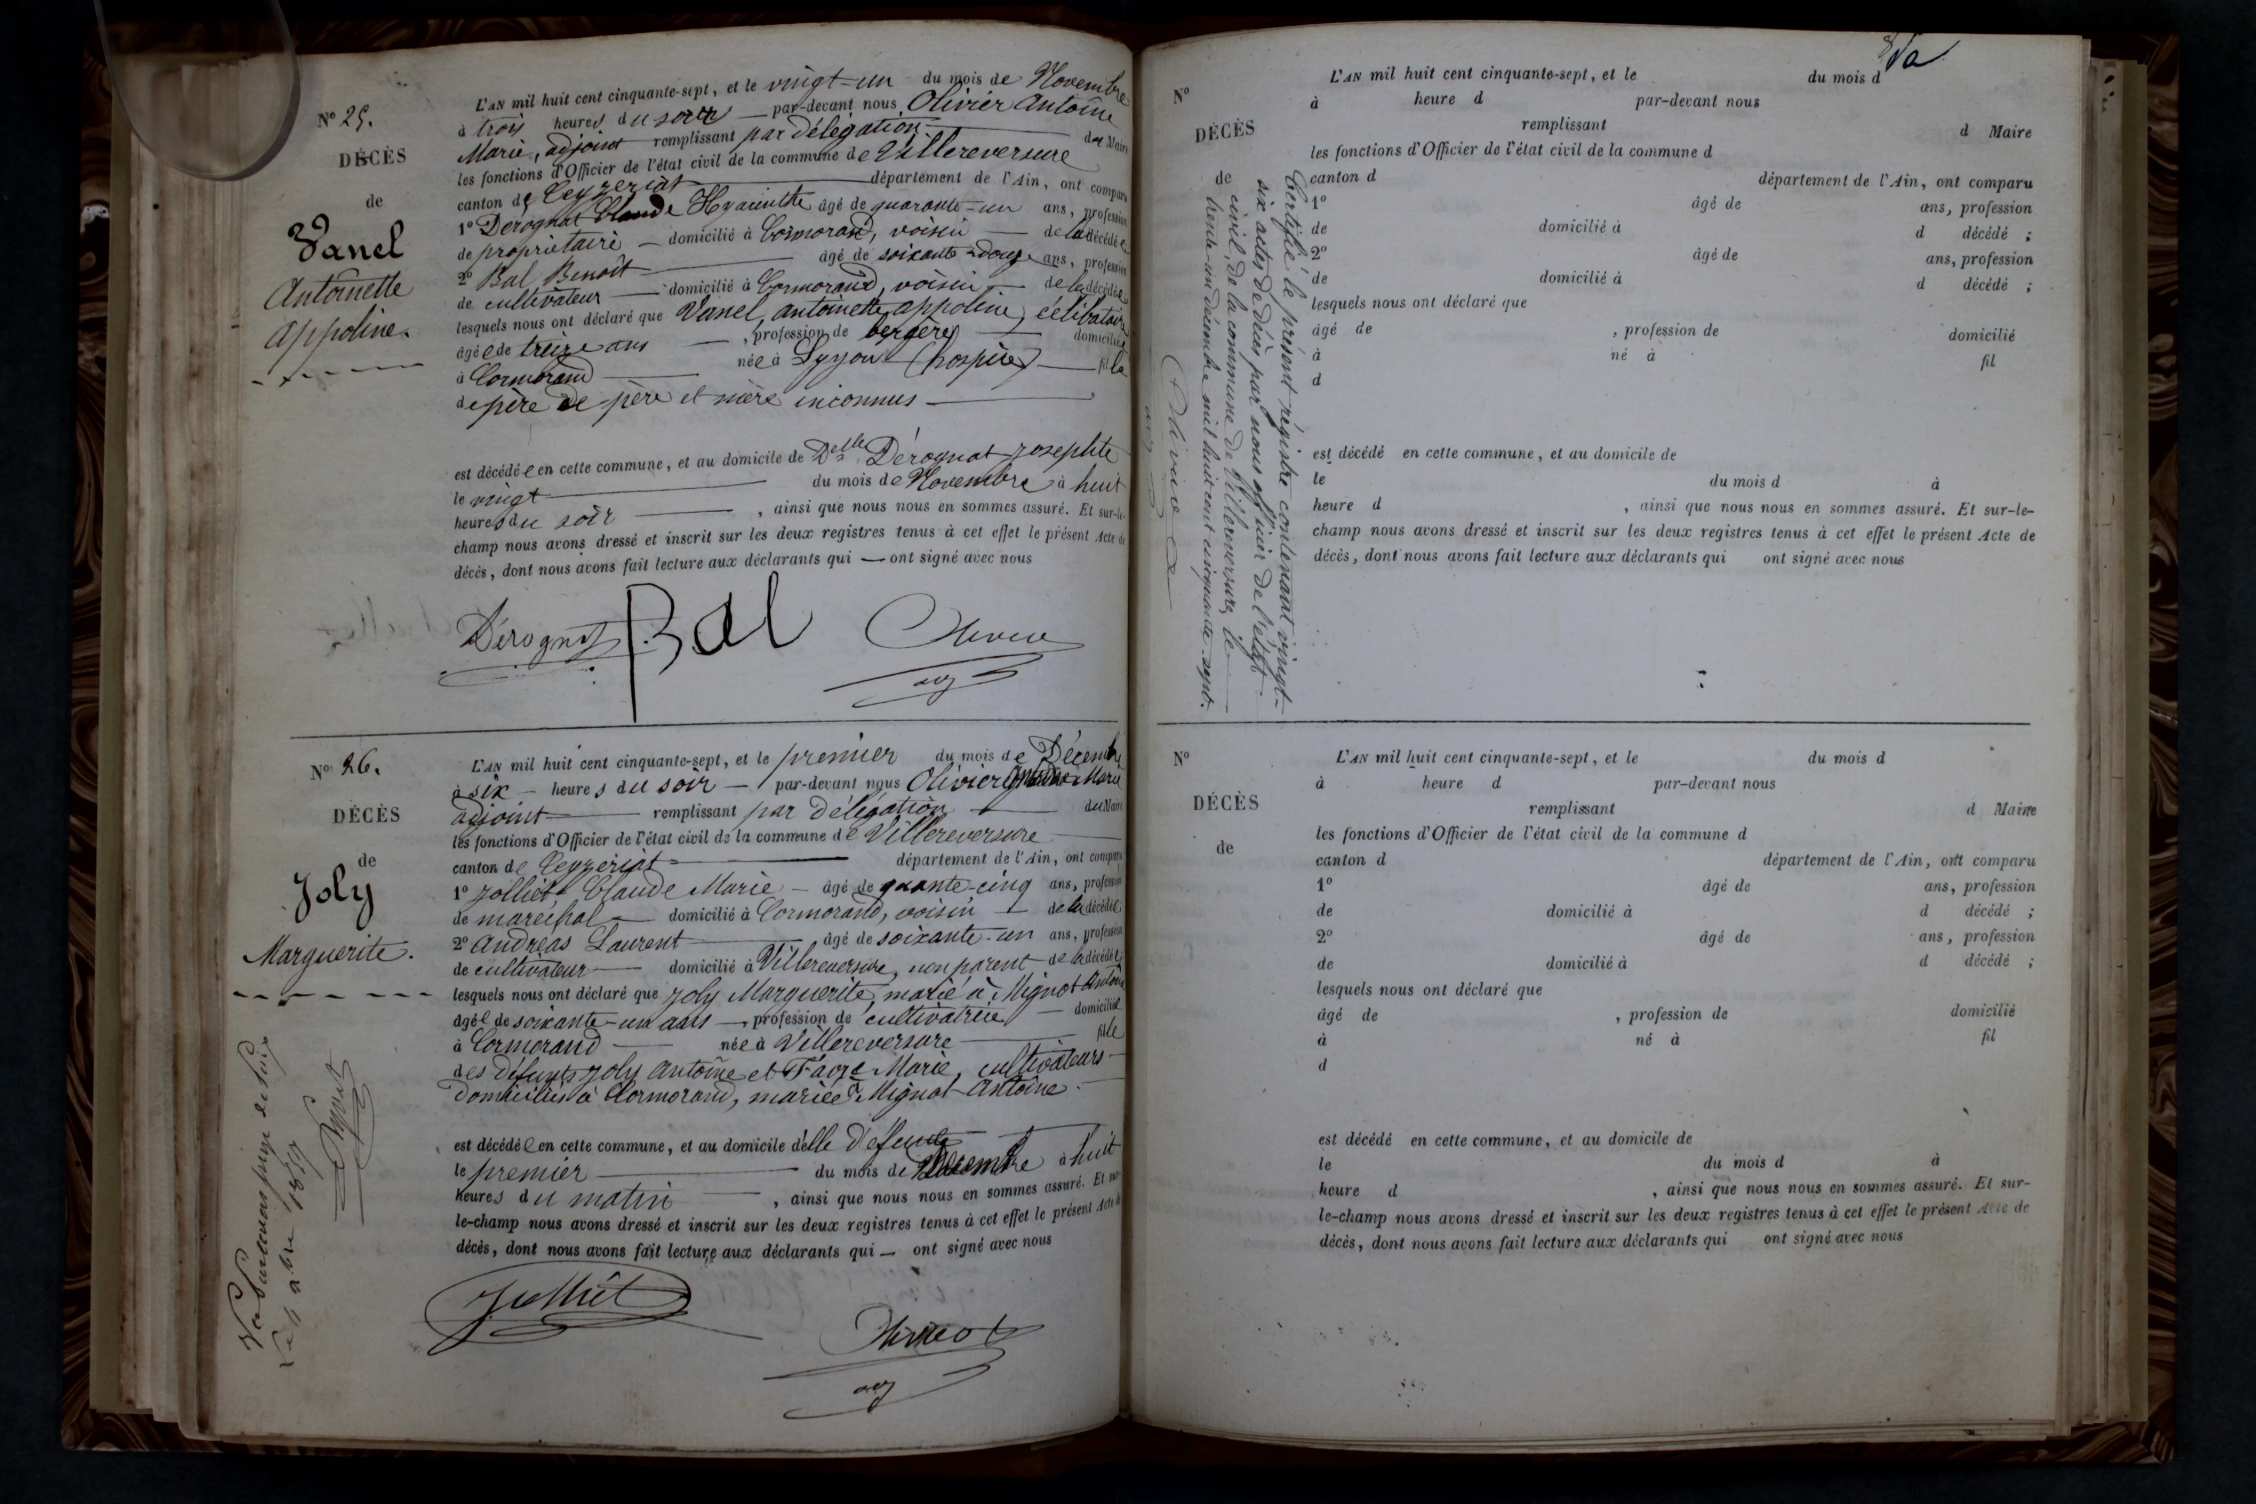 N° 25.
DÉCÈS
de
Vanel
Antoinette
Appoline.
L'AN mil huit cent cinquante-sept, et le vingt-un du mois de Novembre
à trois heures du soir par-devant nous Olivier Antoine
Marie, adjoint remplissant par délégation du Maire
les fonctions d'Officier de l'état civil de la commune de Villereversure
canton de Ceyzeriat département de l'Ain, ont comparu
1° Derognat Claude Hyacinthe âgé de quarante-un ans, profession
de propriétaire domicilié à Cormorand, voisin de la décédée
2° Bal Benoît âgé de soixante-douze ans, profession
de cultivateur domicilié à Cormorand, voisin de la décédée
lesquels nous ont déclaré que Vanel, antoinette, appoline, célibataire
âgée de treize ans, profession de bergère domiciliée
à Cormorand née à Lyon (hospice) fille
de père de père et mère inconnus
est décédée en cette commune, et au domicile de Delle Dérognat Josephte
le vingt du mois de Novembre à huit
heures du soir, ainsi que nous nous en sommes assuré. Et sur-le-
champ nous avons dressé et inscrit sur les deux registres tenus à cet effet le présent Acte de
décès, dont nous avons fait lecture aux déclarants qui — ont signé avec nous
Dérognat Bal Olivier
adj
N° 26.
DÉCÈS
de
Joly
Marguerite.
L'AN mil huit cent cinquante-sept, et le premier du mois de Décembre
à six heures du soir par-devant nous Olivier Antoine Marie
adjoint remplissant par délégation du Maire
les fonctions d'Officier de l'état civil de la commune de Villereversure
canton de Ceyzeriat département de l'Ain, ont comparu
1° Jolliet Claude Marie âgé de quante-cinq ans, profession
de maréchal domicilié à Cormorand, voisin de la décédée
2° Andréas Laurent âgé de soixante-un ans, profession
de cultivateur domicilié à Villereversure, non parent de la décédée
lesquels nous ont déclaré que Joly Marguerite, marié à Mignot Antoine
âgée de soixante-un ans, profession de cultivatrice domiciliée
à Cormorand née à Villereversure fille
des défunts Joly Antoine et Favre Marie, cultivateurs
domiciliés à Cormorand, mariée à Mignot Antoine.
est décédée en cette commune, et au domicile d'elle défunte
le premier du mois de Décembre à huit
heures du matin, ainsi que nous nous en sommes assuré. Et sur-
le-champ nous avons dressé et inscrit sur les deux registres tenus à cet effet le présent Acte de
décès, dont nous avons fait lecture aux déclarants qui — ont signé avec nous
Jolliet
Olivier
adj
N°
DÉCÈS
de
L'AN mil huit cent cinquante-sept, et le du mois d
à heure d par-devant nous
remplissant d Maire
les fonctions d'Officier de l'état civil de la commune d
canton d département de l'Ain, ont comparu
1° âgé de ans, profession
de domicilié à d décédé ;
2° âgé de ans, profession
de domicilié à d décédé ;
lesquels nous ont déclaré que
âgé de , profession de domicilié
à né à fil
d
est décédé en cette commune, et au domicile de
le du mois d à
heure d , ainsi que nous nous en sommes assuré. Et sur-le-
champ nous avons dressé et inscrit sur les deux registres tenus à cet effet le présent Acte de
décès, dont nous avons fait lecture aux déclarants qui ont signé avec nous
Certifié le présent régistre contenant vingt-
six actes de décès par nous officier de l'état
civil, de la commune de Villereversure, le
trente-un décembre mil huit cent cinquante-sept.
Olivier
adj
N°
DÉCÈS
de
L'AN mil huit cent cinquante-sept, et le du mois d
à heure d par-devant nous
remplissant d Maire
les fonctions d'Officier de l'état civil de la commune d
canton d département de l'Ain, ont comparu
1° âgé de ans, profession
de domicilié à d décédé ;
2° âgé de ans, profession
de domicilié à d décédé ;
lesquels nous ont déclaré que
âgé de , profession de domicilié
à né à fil
d
est décédé en cette commune, et au domicile de
le du mois d à
heure d , ainsi que nous nous en sommes assuré. Et sur-
le-champ nous avons dressé et inscrit sur les deux registres tenus à cet effet le présent Acte de
décès, dont nous avons fait lecture aux déclarants qui ont signé avec nous